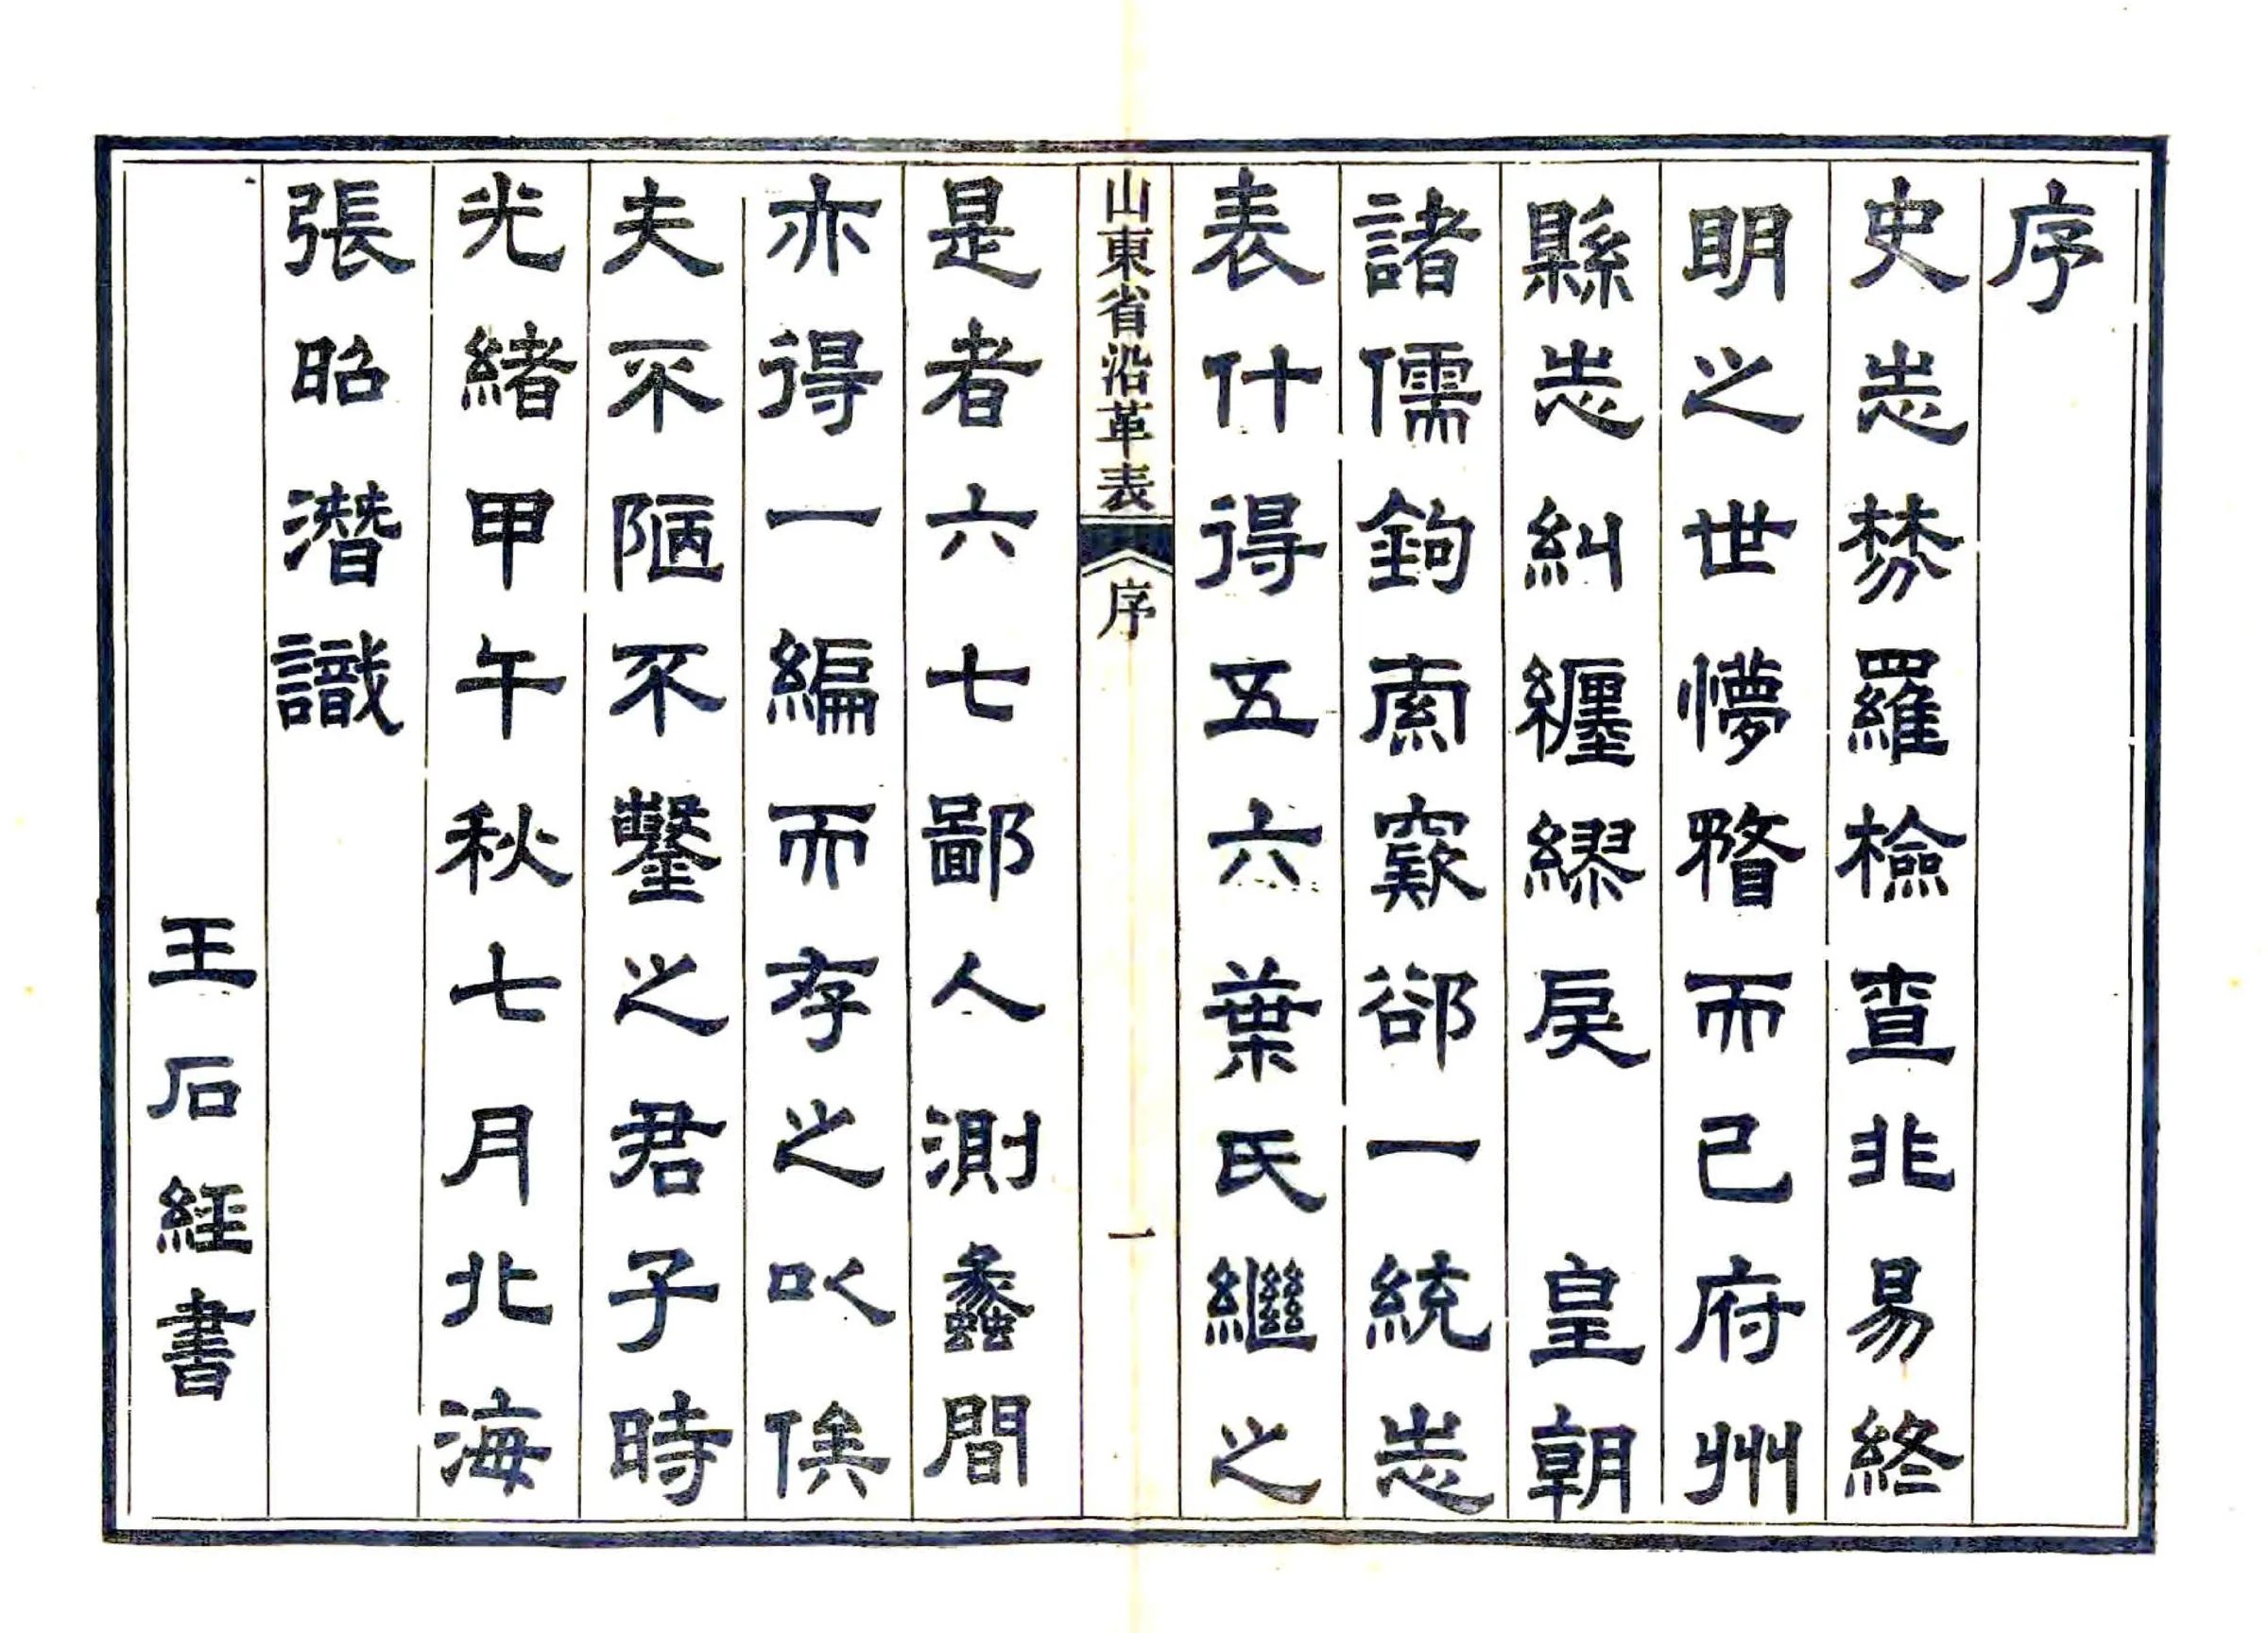 序
史志棼羅檢查非易終
明之世懜瞀而已府州
縣志糾纏繆戾　皇朝
諸儒鉤索窾郤一統志
表什得五六葉氏繼之
山東省沿革表
序
一
是者六七鄙人測蠡間
亦得一編而存之以俟
夫不陋不鑿之君子時
光緒甲午秋七月北海
張昭潛識
王石經書